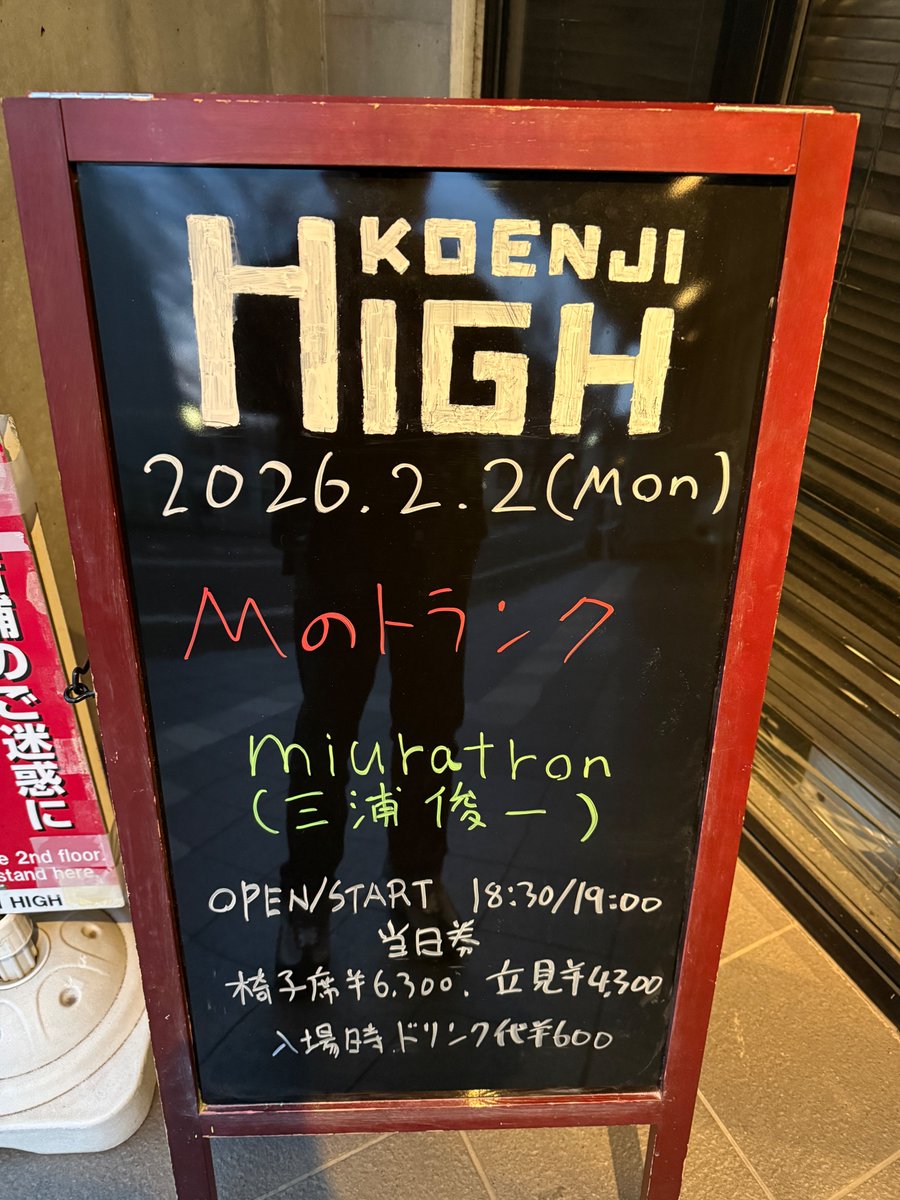 KOENJI
HIGH
2026.2.2(Mon)
Mのトランク
miuratron
(三浦俊一)
OPEN/START 18:30/19:00
当日券
椅子席¥6,300、立見¥4,300
入場時ドリンク代¥600
舗のご迷惑に
e 2nd floor.
stand here.
HIGH